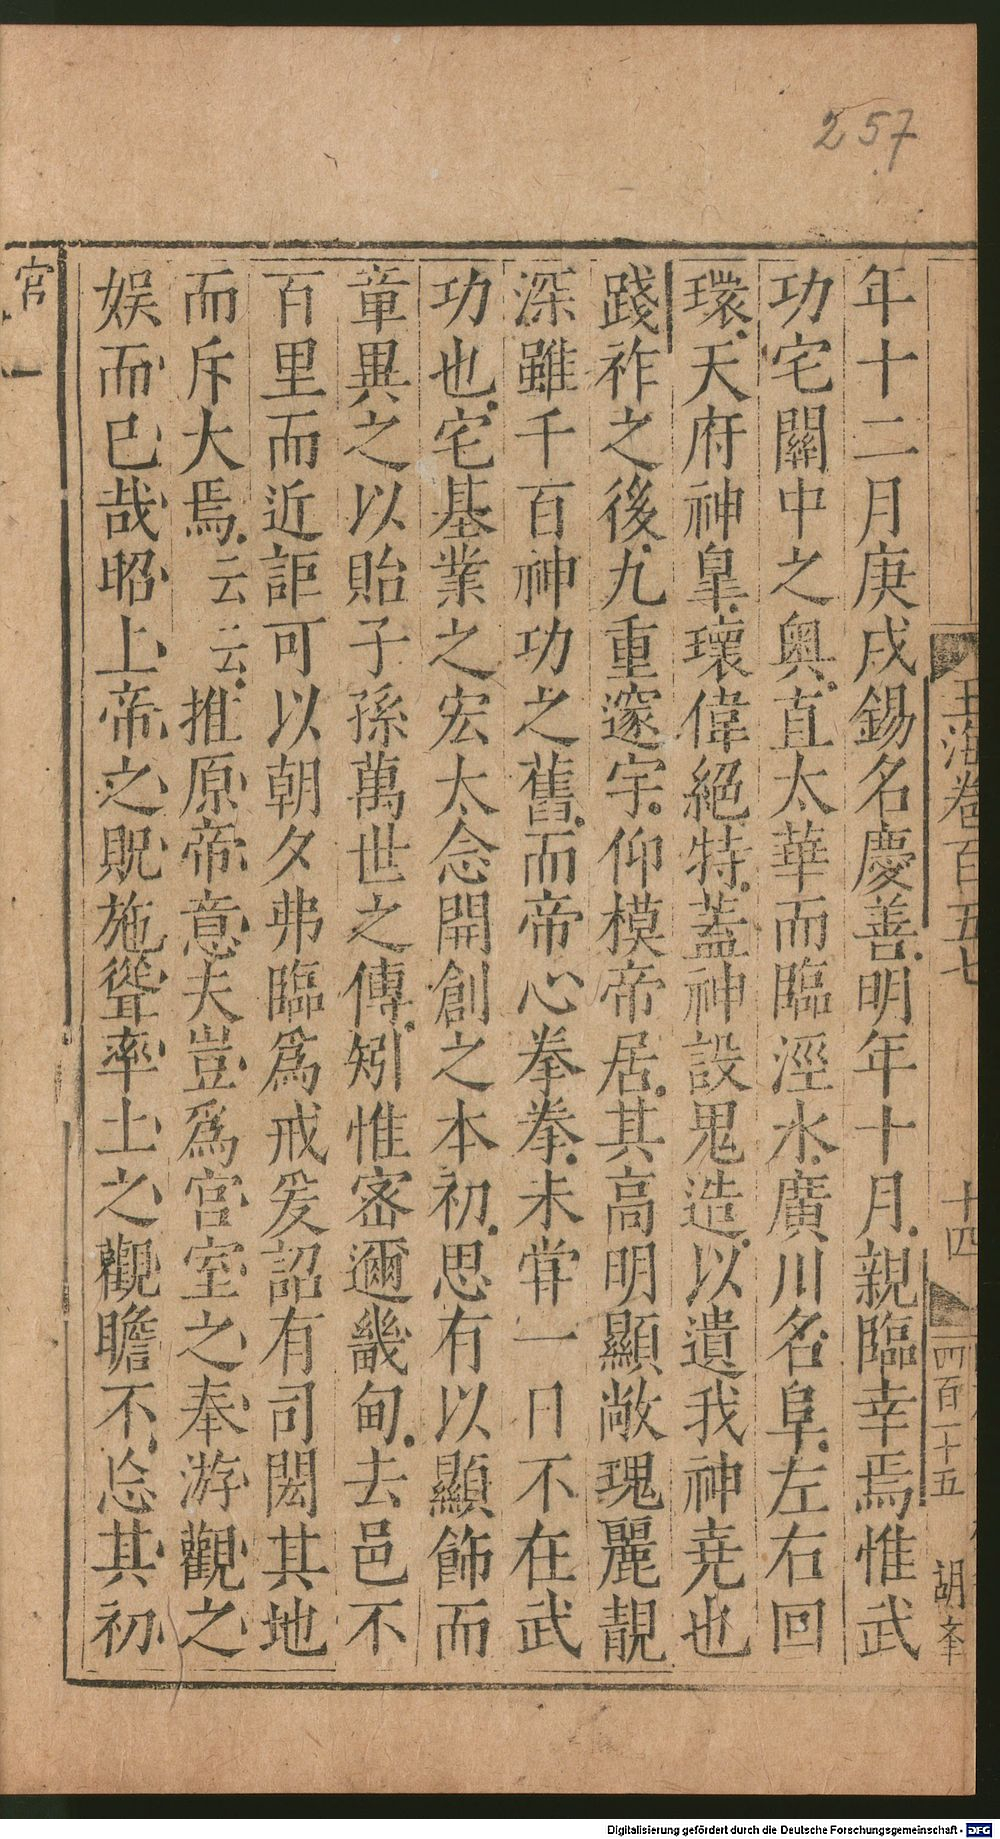 257
玉海卷百五七
十四
四百十五
胡
年十二月庚戌錫名慶善明年十月親臨幸焉惟武
功宅關中之奥直太華而臨涇水廣川名阜左右回
環天府神皐瓌偉絕特葢神設鬼造以遺我神堯也
踐祚之後九重邃宇仰模帝居其高明顯敞瑰麗靚
深雖千百神功之舊而帝心拳拳未甞一日不在武
功也宅基業之宏太念開創之本初思有以顯飾而
章異之以貽子孫萬世之傳矧惟宻邇畿甸去邑不
百里而近詎可以朝夕弗臨爲戒爰詔有司閎其地
而斥大焉云云推原帝意夫豈爲宫室之奉游觀之
娱而已哉昭上帝之貺施聳率土之觀瞻不忘其初
官一
Digitalisierung gefördert durch die Deutsche Forschungsgemeinschaft - DFG